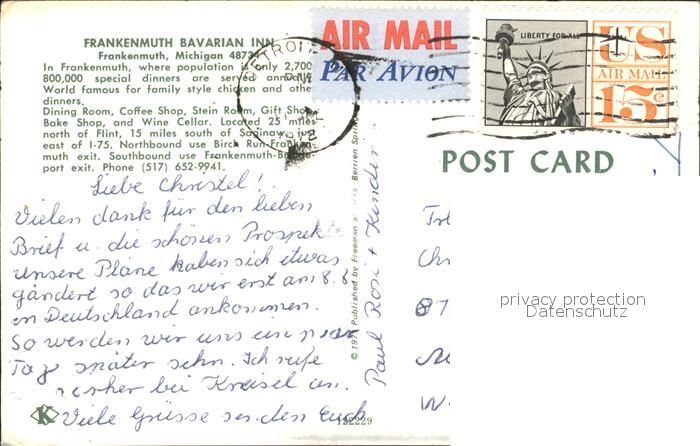 FRANKENMUTH BAVARIAN INN
Frankenmuth, Michigan 48734
In Frankenmuth, where population is only 2,700
800,000 special dinners are served annually.
World famous for family style chicken and other
dinners.
Dining Room, Coffee Shop, Stein Room, Gift Shop,
Bake Shop, and Wine Cellar. Located 25 miles
north of Flint, 15 miles south of Saginaw, just
east of I-75. Northbound use Birch Run-Franken-
muth exit. Southbound use Frankenmuth-Bridge-
port exit. Phone (517) 652-9941.
DETROIT
AIR MAIL
PAR AVION
LIBERTY FOR ALL
US
AIR MAIL
15¢
POST CARD
Liebe Christel!
Vielen dank für den lieben
Brief u. die schönen Prospekte
Unsere Pläne haben sich etwas
gändert so das wir erst am 8.
in Deutschland ankommen.
So werden wir uns ein paar
Tag später sehn. Ich rufe
vorher bei Kreisel an.
Viele Grüsse senden Euch
Paul Rosi + Kinder
Published by Freeman
Berrien
K
122229
Chr
87
W
privacy protection
Datenschutz